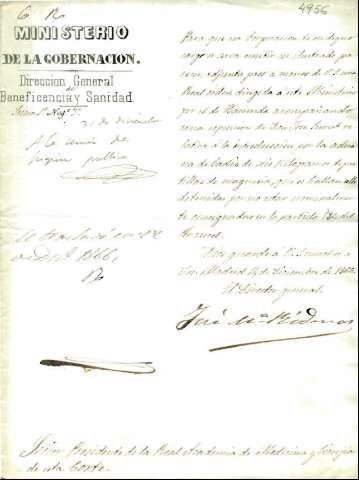 4956
MINISTERIO
DE LA GOBERNACION.
Direccion General
de
Beneficencia y Sanidad
21 de diciembre
A la sección de
Para que esa Corporacion de su digno
cargo se sirva emitir su ilustrado pa
recer, adjunta paso a manos de V. E. una
Real orden dirigida a este Ministerio
por el de Hacienda acompañando
una esposicion de Don José
lativa a la introduccion por la adua
na de Cadiz de seis Kilogramos de pas
tillas de magnesia, que se hallan alli
detenidas por no estar nominalmente
consignadas en la partida del
Arancel.
Dios guarde a V. E. muchos a
ños. Madrid de Diciembre de
El Director general,
José Mª
de 1866,
Señor Presidente de la Real Academia de Medicina y Cirugia
de esta Corte.